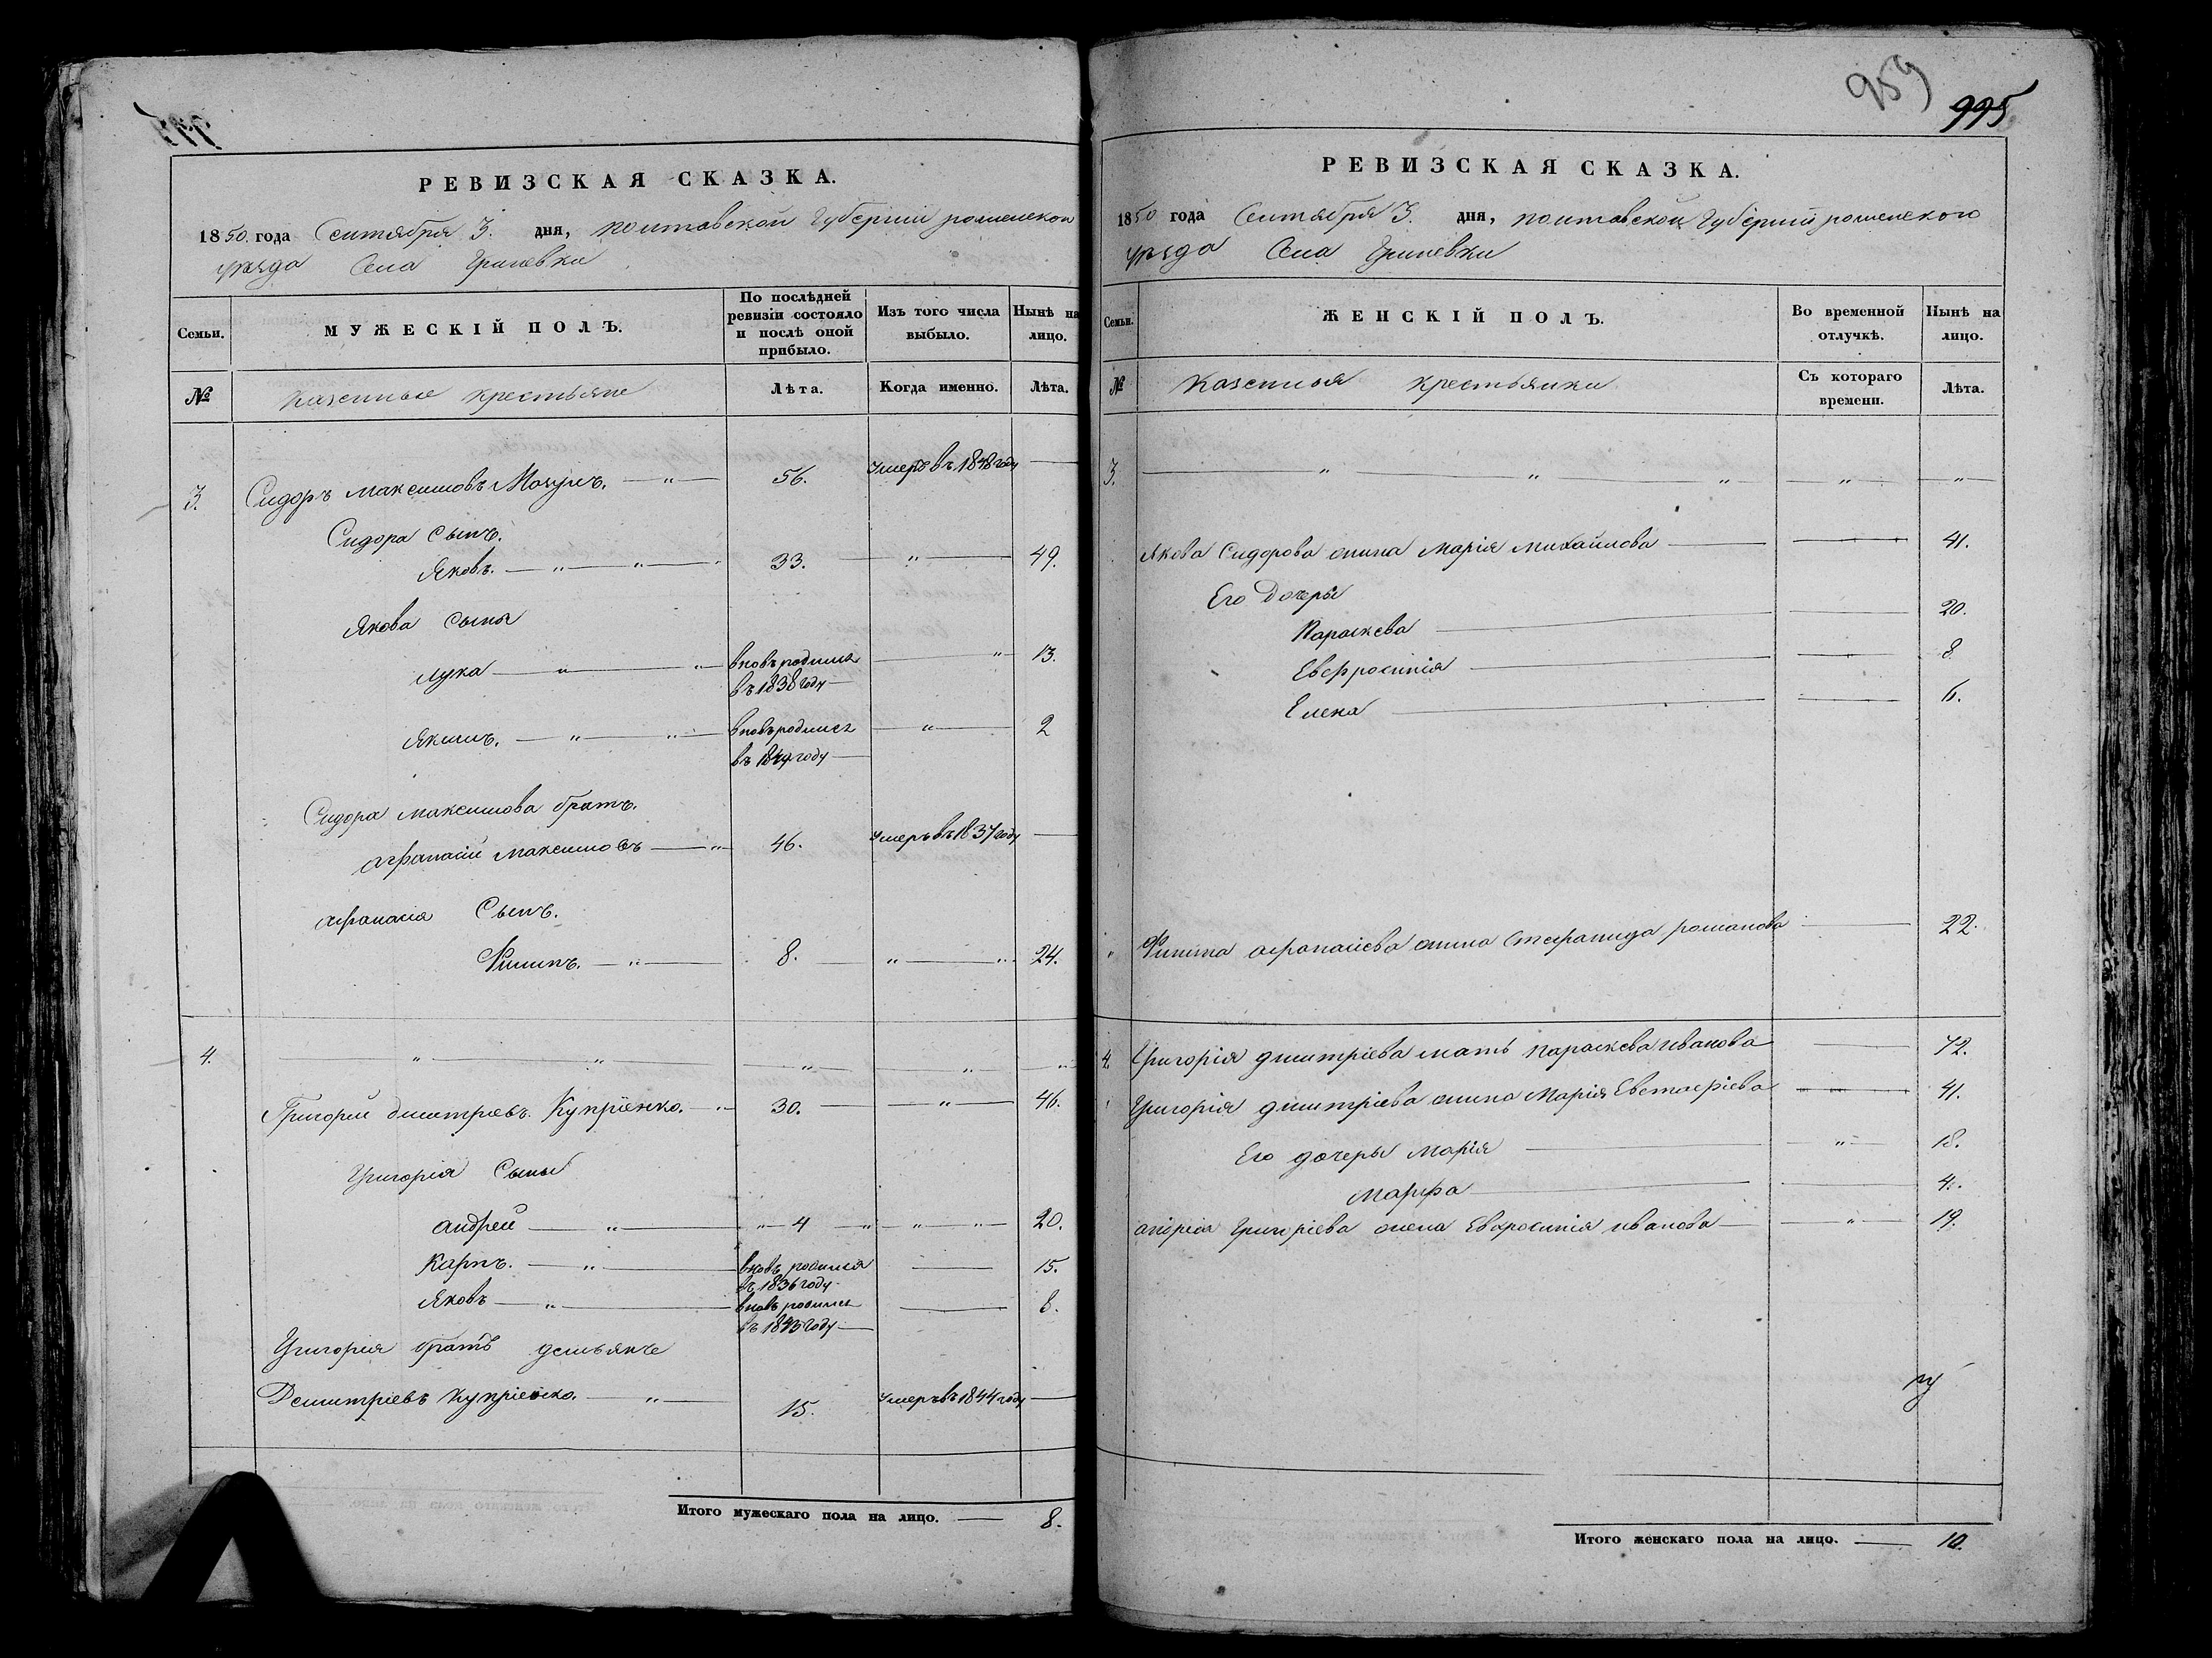 РЕВИЗСКАЯ СКАЗКА.
1850. года Сентября 3. дня, полтавской Губерніи роменского
уѣзда Села Гриневки
Семьи.
МУЖЕСКІЙ ПОЛЪ.
По послѣдней ревизіи состояло и послѣ оной прибыло.
Изъ того числа выбыло.
Нынѣ на лицо.
№
казенные крестьяне
Лѣта.
Когда именно.
Лѣта.
3. Сидоръ максимовъ 56. умеръ въ 1848 году
Сидора Сынъ.
Яковъ. 33. 49.
Якова Сыны
лука вновь родился 13.
въ 1838 году
Якимъ. вновь родился 2
въ году
Сидора максимова братъ.
афанасій максимовъ 46. умеръ въ 1837 году
афанасія Сынъ.
Филипъ. 8. 24.
4.
Григорій дмитріевъ Купріенко. 30. 46.
Григорія Сыны
андрей 4 20.
Карпъ. вновь родился 15.
въ 1836 году
Яковъ вновь родился 8.
въ 1843 году
Григорія братъ демьянъ
Демитріевъ Купріенко. 15. умеръ въ 1844 году
Итого мужескаго пола на лицо. 8.
959
995
РЕВИЗСКАЯ СКАЗКА.
1850 года Сентября 3. дня, полтавской Губерніи роменского
уѣзда Села Гриневки
Семьи.
ЖЕНСКІЙ ПОЛЪ.
Во временной отлучкѣ.
Нынѣ на лицо.
№
Казенныя крестьянки
Съ котораго времени.
Лѣта.
3.
Якова Сидорова жина Марія михайлова 41.
Его дочеры
Параскева 20.
Евфросинія 8
Елена 6.
Филипа афанасіева жина Стефанида романова 22.
4. Григорія дмитріева мать параскева иванова 72.
Григорія дмитріева жина Марія Евстафіева 41.
Его дочеры марія 18.
марфа 4.
андрея Григоріева жена Евфросинія иванова 19.
Итого женскаго пола на лицо. 10.